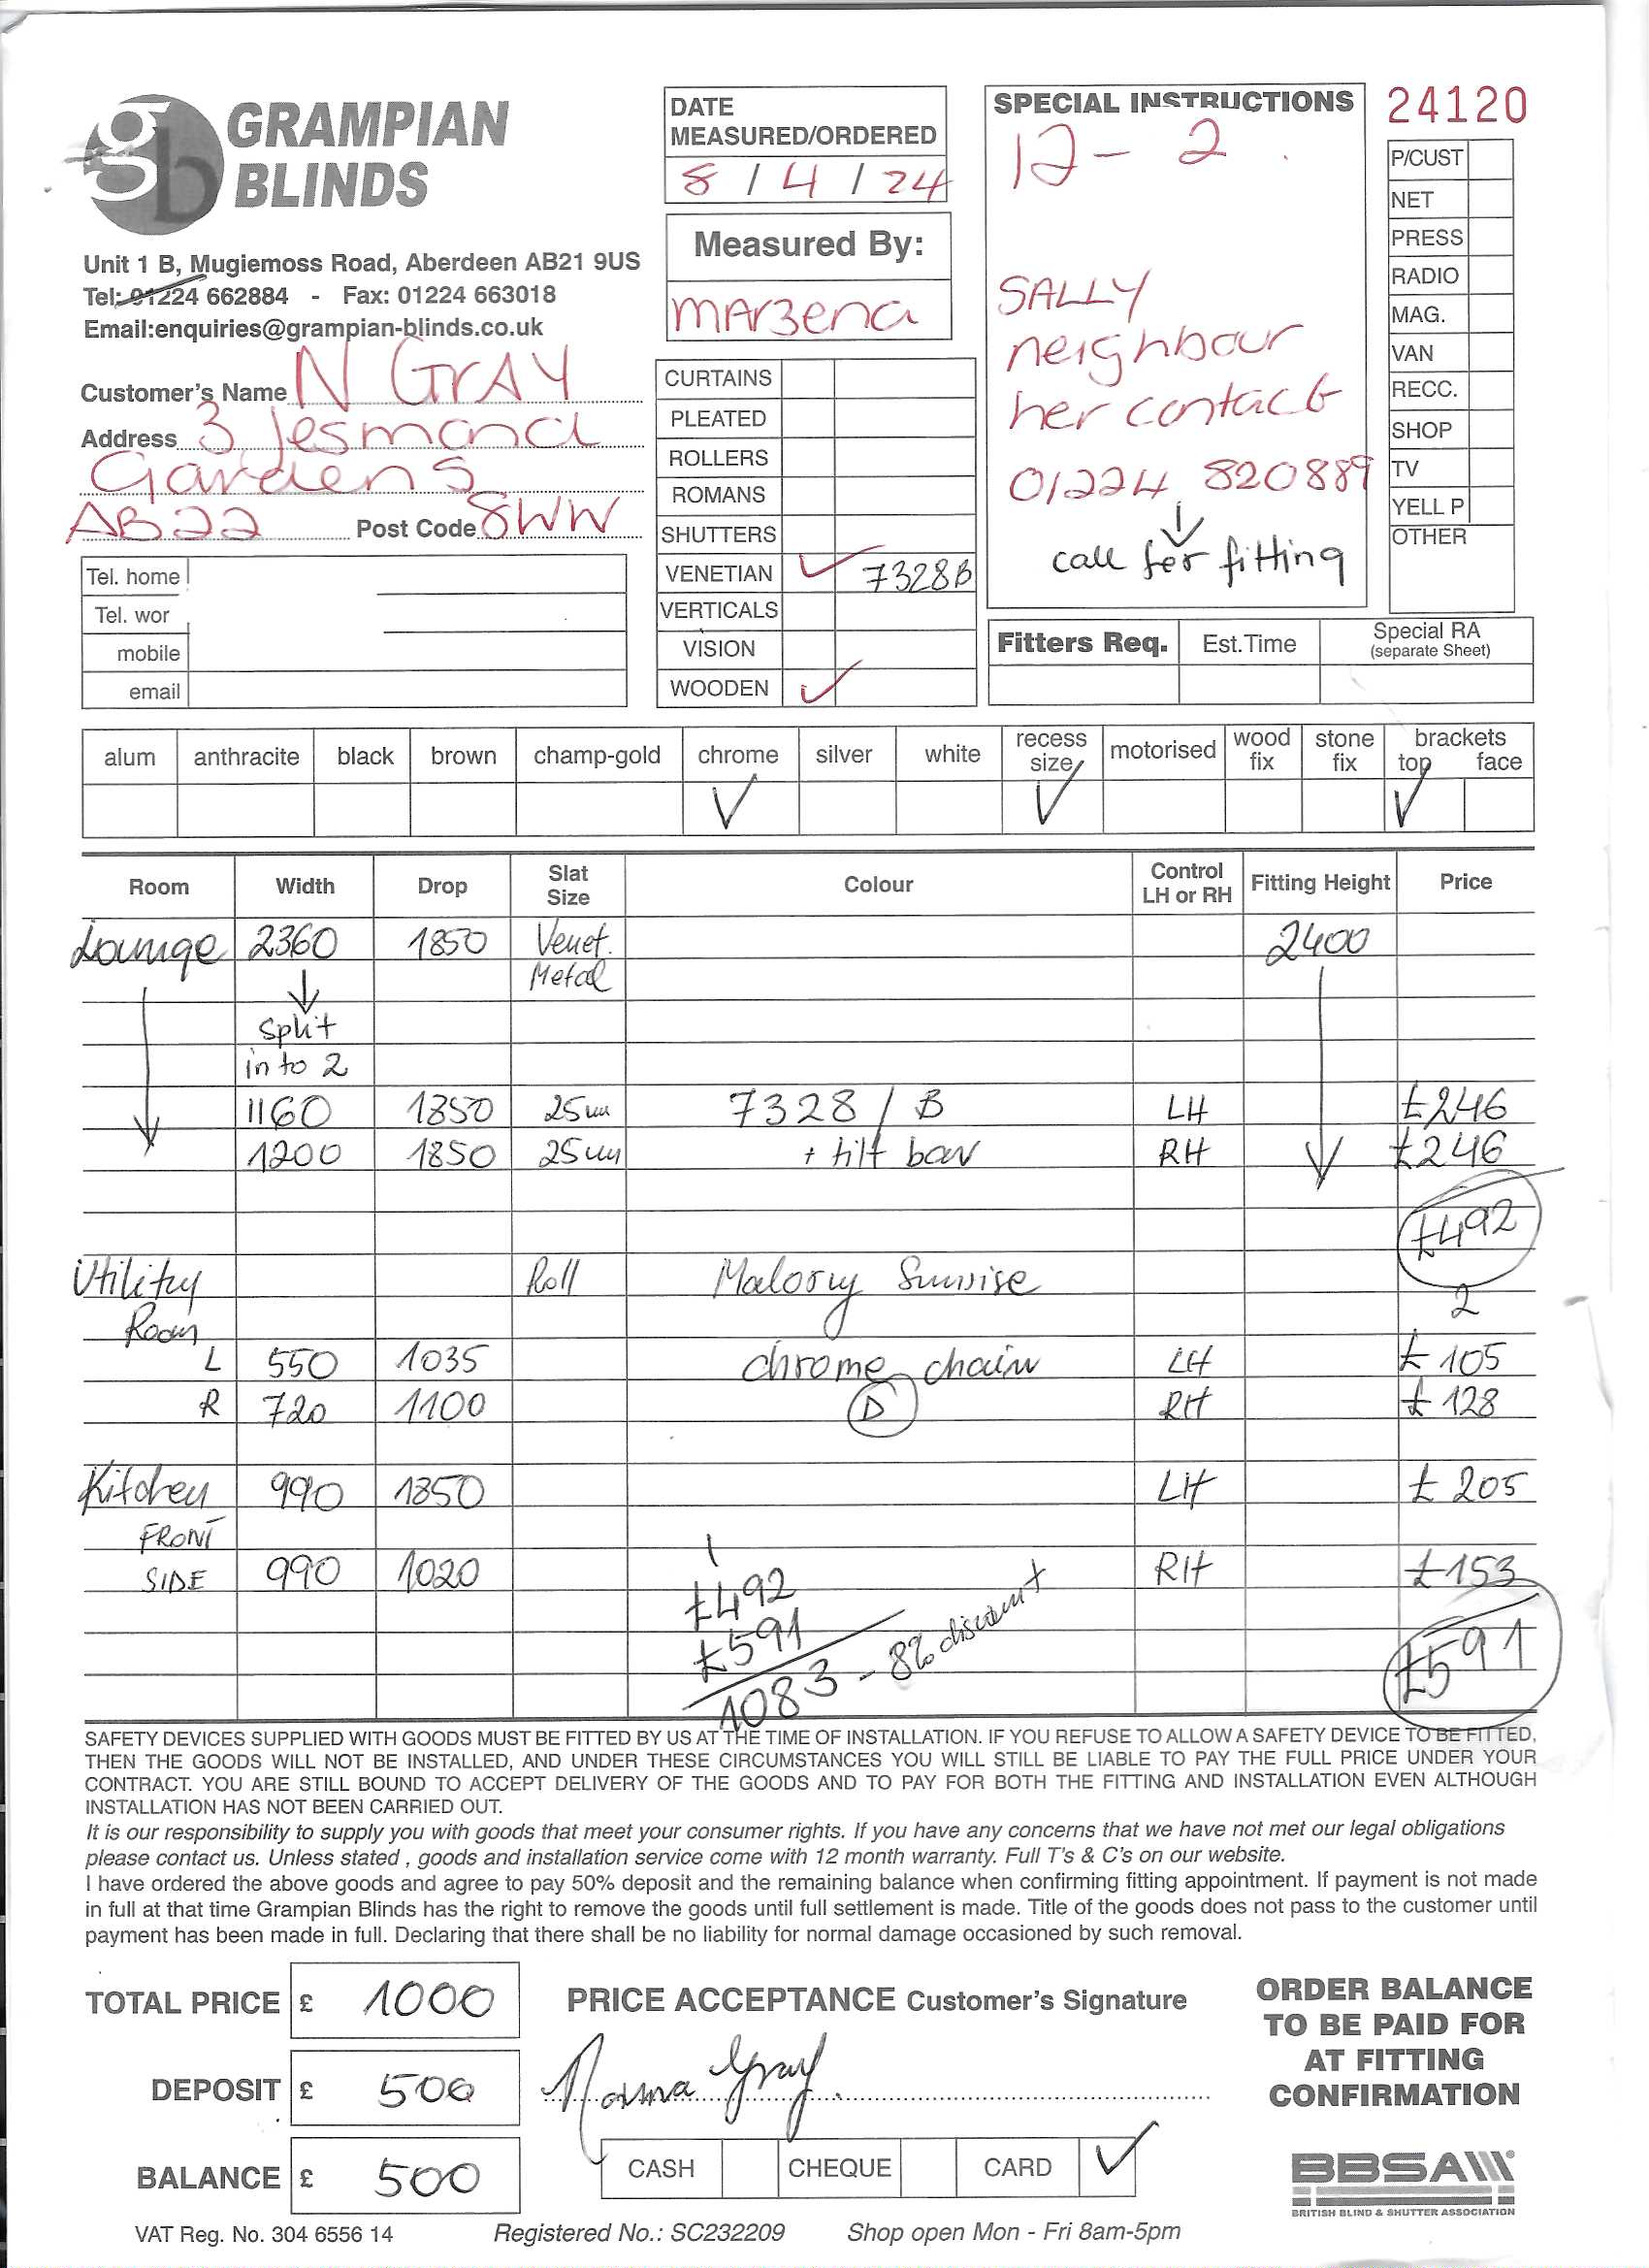 GRAMPIAN
BLINDS
Unit 1 B, Mugiemoss Road, Aberdeen AB21 9US
Tel: 01224 662884 - Fax: 01224 663018
Email:enquiries@grampian-blinds.co.uk
Customer's Name N GRAY
Address 3 Jesmond
Gardens
AB22 Post Code 8WW
Tel. home
Tel. wor
mobile
email
DATE
MEASURED/ORDERED
8 / 4 / 24
Measured By:
MArzena
CURTAINS
PLEATED
ROLLERS
ROMANS
SHUTTERS
VENETIAN ✓ 7328B
VERTICALS
VISION
WOODEN ✓
SPECIAL INSTRUCTIONS
12 - 2
SALLY
neighbour
her contact
01224 820889
↓
call for fitting
24120
P/CUST
NET
PRESS
RADIO
MAG.
VAN
RECC.
SHOP
TV
YELL P
OTHER
Fitters Req. Est.Time Special RA
(separate Sheet)
alum anthracite black brown champ-gold chrome silver white recess size motorised wood fix stone fix brackets top face
✓ ✓ ✓
Room Width Drop Slat Size Colour Control LH or RH Fitting Height Price
Lounge 2360 1850 Venet. 2400
↓ Metal
split
in to 2
1160 1850 25mm 7328 / B LH £246
1200 1850 25mm + tilt bar RH £246
£492
Utility Roll Malory Sunrise 2
Room
L 550 1035 chrome chain LH £105
R 720 1100 D RH £128
Kitchen 990 1350 LH £205
FRONT
SIDE 990 1020 RH £153
£492
£591 £591
1083 - 8% discount
SAFETY DEVICES SUPPLIED WITH GOODS MUST BE FITTED BY US AT THE TIME OF INSTALLATION. IF YOU REFUSE TO ALLOW A SAFETY DEVICE TO BE FITTED,
THEN THE GOODS WILL NOT BE INSTALLED, AND UNDER THESE CIRCUMSTANCES YOU WILL STILL BE LIABLE TO PAY THE FULL PRICE UNDER YOUR
CONTRACT. YOU ARE STILL BOUND TO ACCEPT DELIVERY OF THE GOODS AND TO PAY FOR BOTH THE FITTING AND INSTALLATION EVEN ALTHOUGH
INSTALLATION HAS NOT BEEN CARRIED OUT.
It is our responsibility to supply you with goods that meet your consumer rights. If you have any concerns that we have not met our legal obligations
please contact us. Unless stated , goods and installation service come with 12 month warranty. Full T's & C's on our website.
I have ordered the above goods and agree to pay 50% deposit and the remaining balance when confirming fitting appointment. If payment is not made
in full at that time Grampian Blinds has the right to remove the goods until full settlement is made. Title of the goods does not pass to the customer until
payment has been made in full. Declaring that there shall be no liability for normal damage occasioned by such removal.
TOTAL PRICE £ 1000
DEPOSIT £ 500
BALANCE £ 500
PRICE ACCEPTANCE Customer's Signature
Norma Gray
CASH CHEQUE CARD ✓
ORDER BALANCE
TO BE PAID FOR
AT FITTING
CONFIRMATION
BBSA
BRITISH BLIND & SHUTTER ASSOCIATION
VAT Reg. No. 304 6556 14 Registered No.: SC232209 Shop open Mon - Fri 8am-5pm